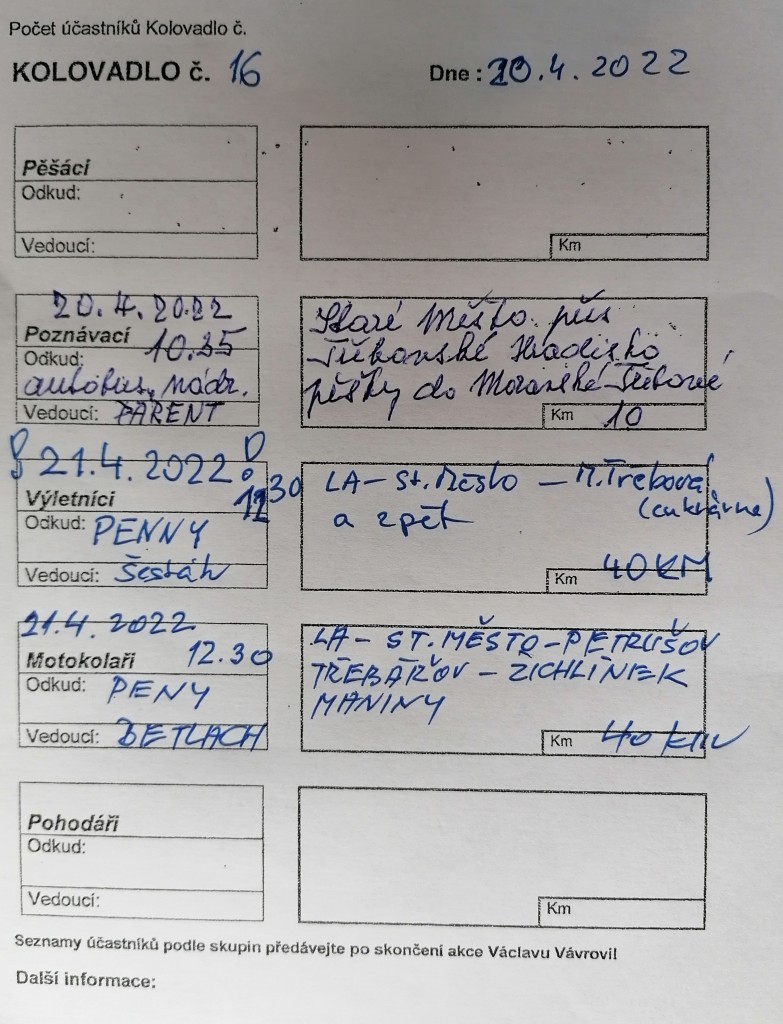 Počet účastníků Kolovadlo č.
KOLOVADLO č. 16
Dne : 20.4.2022
Pěšáci
Odkud:
Vedoucí:
Km
20.4.2022
Poznávací 10.35
Odkud:
autobus. nádr.
Vedoucí: PARENT
Staré Město přes
Tŕebovské Hradisko
pěšky do Moravské Třebové
Km 10
! 21.4.2022 !
Výletníci 12 30
Odkud: PENNY
Vedoucí: Šesták
LA - St. Město - M. Třebová
(cukrárna)
a zpět
Km 40 KM
21.4.2022
Motokolaři 12.30
Odkud: PENY
Vedoucí: DETLACH
LA - ST. MĚSTO - PETRUŠOV
TŘEBAŘOV - ZICHLÍNEK
MANINY
Km 40 km
Pohodáři
Odkud:
Vedoucí:
Km
Seznamy účastníků podle skupin předávejte po skončení akce Václavu Vávrovi!
Další informace: